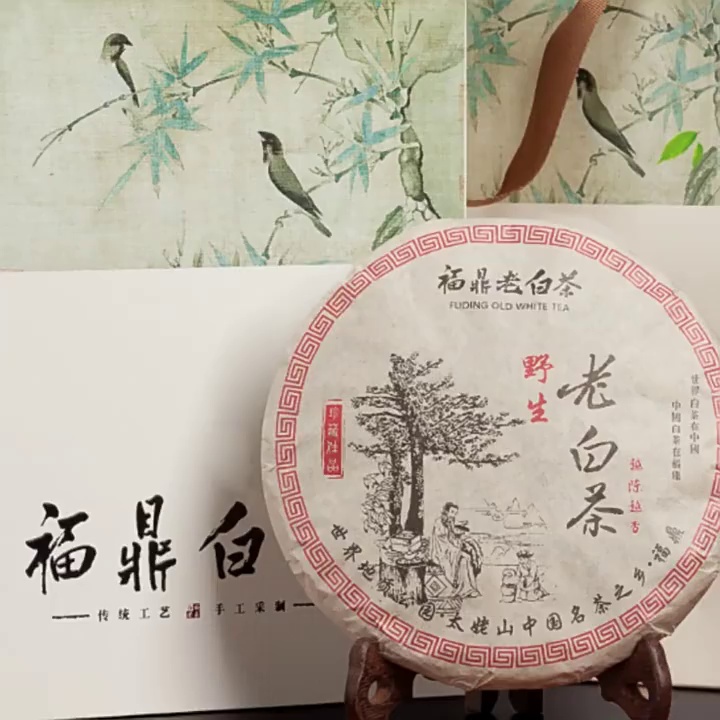 福鼎老白茶
FUDING OLD WHITE TEA
野生
老白茶
世界白茶在中國
中國白茶在福鼎
珍藏佳品
越陈越香
世界地质公园·太姥山中国名茶之乡·福鼎
福鼎白
传统工艺 手工采制